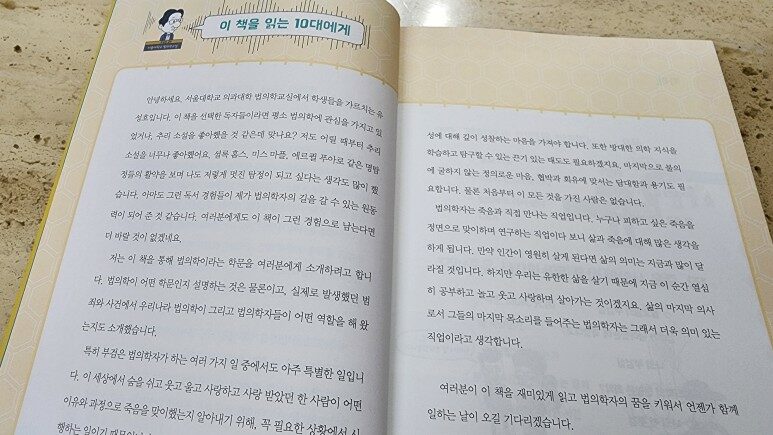 이 책을 읽는 10대에게
안녕하세요. 서울대학교 의과대학 법의학교실에서 학생들을 가르치는 유
성호입니다. 이 책을 선택한 독자들이라면 평소 법의학에 관심을 가지고 있
었거나, 추리 소설을 좋아했을 것 같은데 맞나요? 저도 어릴 때부터 추리
소설을 너무나 좋아했어요. 셜록 홈스, 미스 마플, 에르퀼 푸아로 같은 명탐
정들의 활약을 보며 나도 저렇게 멋진 탐정이 되고 싶다는 생각도 많이 했
습니다. 아마도 그런 독서 경험들이 제가 법의학자의 길을 갈 수 있는 원동
력이 되어 준 것 같습니다. 여러분에게도 이 책이 그런 경험으로 남는다면
더 바랄 것이 없겠네요.
저는 이 책을 통해 법의학이라는 학문을 여러분에게 소개하려고 합니
다. 법의학이 어떤 학문인지 설명하는 것은 물론이고, 실제로 발생했던 범
죄와 사건에서 우리나라 법의학이 그리고 법의학자들이 어떤 역할을 해 왔
는지도 소개했습니다.
특히 부검은 법의학자가 하는 여러 가지 일 중에서도 아주 특별한 일입니
다. 이 세상에서 숨을 쉬고 웃고 울고 사랑하고 사랑 받았던 한 사람이 어떤
이유와 과정으로 죽음을 맞이했는지 알아내기 위해, 꼭 필요한 상황에서 시
행하는 일이기 때문이
성에 대해 깊이 성찰하는 마음을 가져야 합니다. 또한 방대한 의학 지식을
학습하고 탐구할 수 있는 끈기 있는 태도도 필요하겠지요. 마지막으로 불의
에 굴하지 않는 정의로운 마음, 협박과 회유에 맞서는 담대함과 용기도 필
요합니다. 물론 처음부터 이 모든 것을 가진 사람은 없습니다.
법의학자는 죽음과 직접 만나는 직업입니다. 누구나 피하고 싶은 죽음을
정면으로 맞이하며 연구하는 직업이다 보니 삶과 죽음에 대해 많은 생각을
하게 됩니다. 만약 인간이 영원히 살게 된다면 삶의 의미는 지금과 많이 달
라질 것입니다. 하지만 우리는 유한한 삶을 살기 때문에 지금 이 순간 열심
히 공부하고 놀고 웃고 사랑하며 살아가는 것이겠지요. 삶의 마지막 의사
로서 그들의 마지막 목소리를 들어주는 법의학자는 그래서 더욱 의미 있는
직업이라고 생각합니다.
여러분이 이 책을 재미있게 읽고 법의학자의 꿈을 키워서 언젠가 함께
일하는 날이 오길 기다리겠습니다.